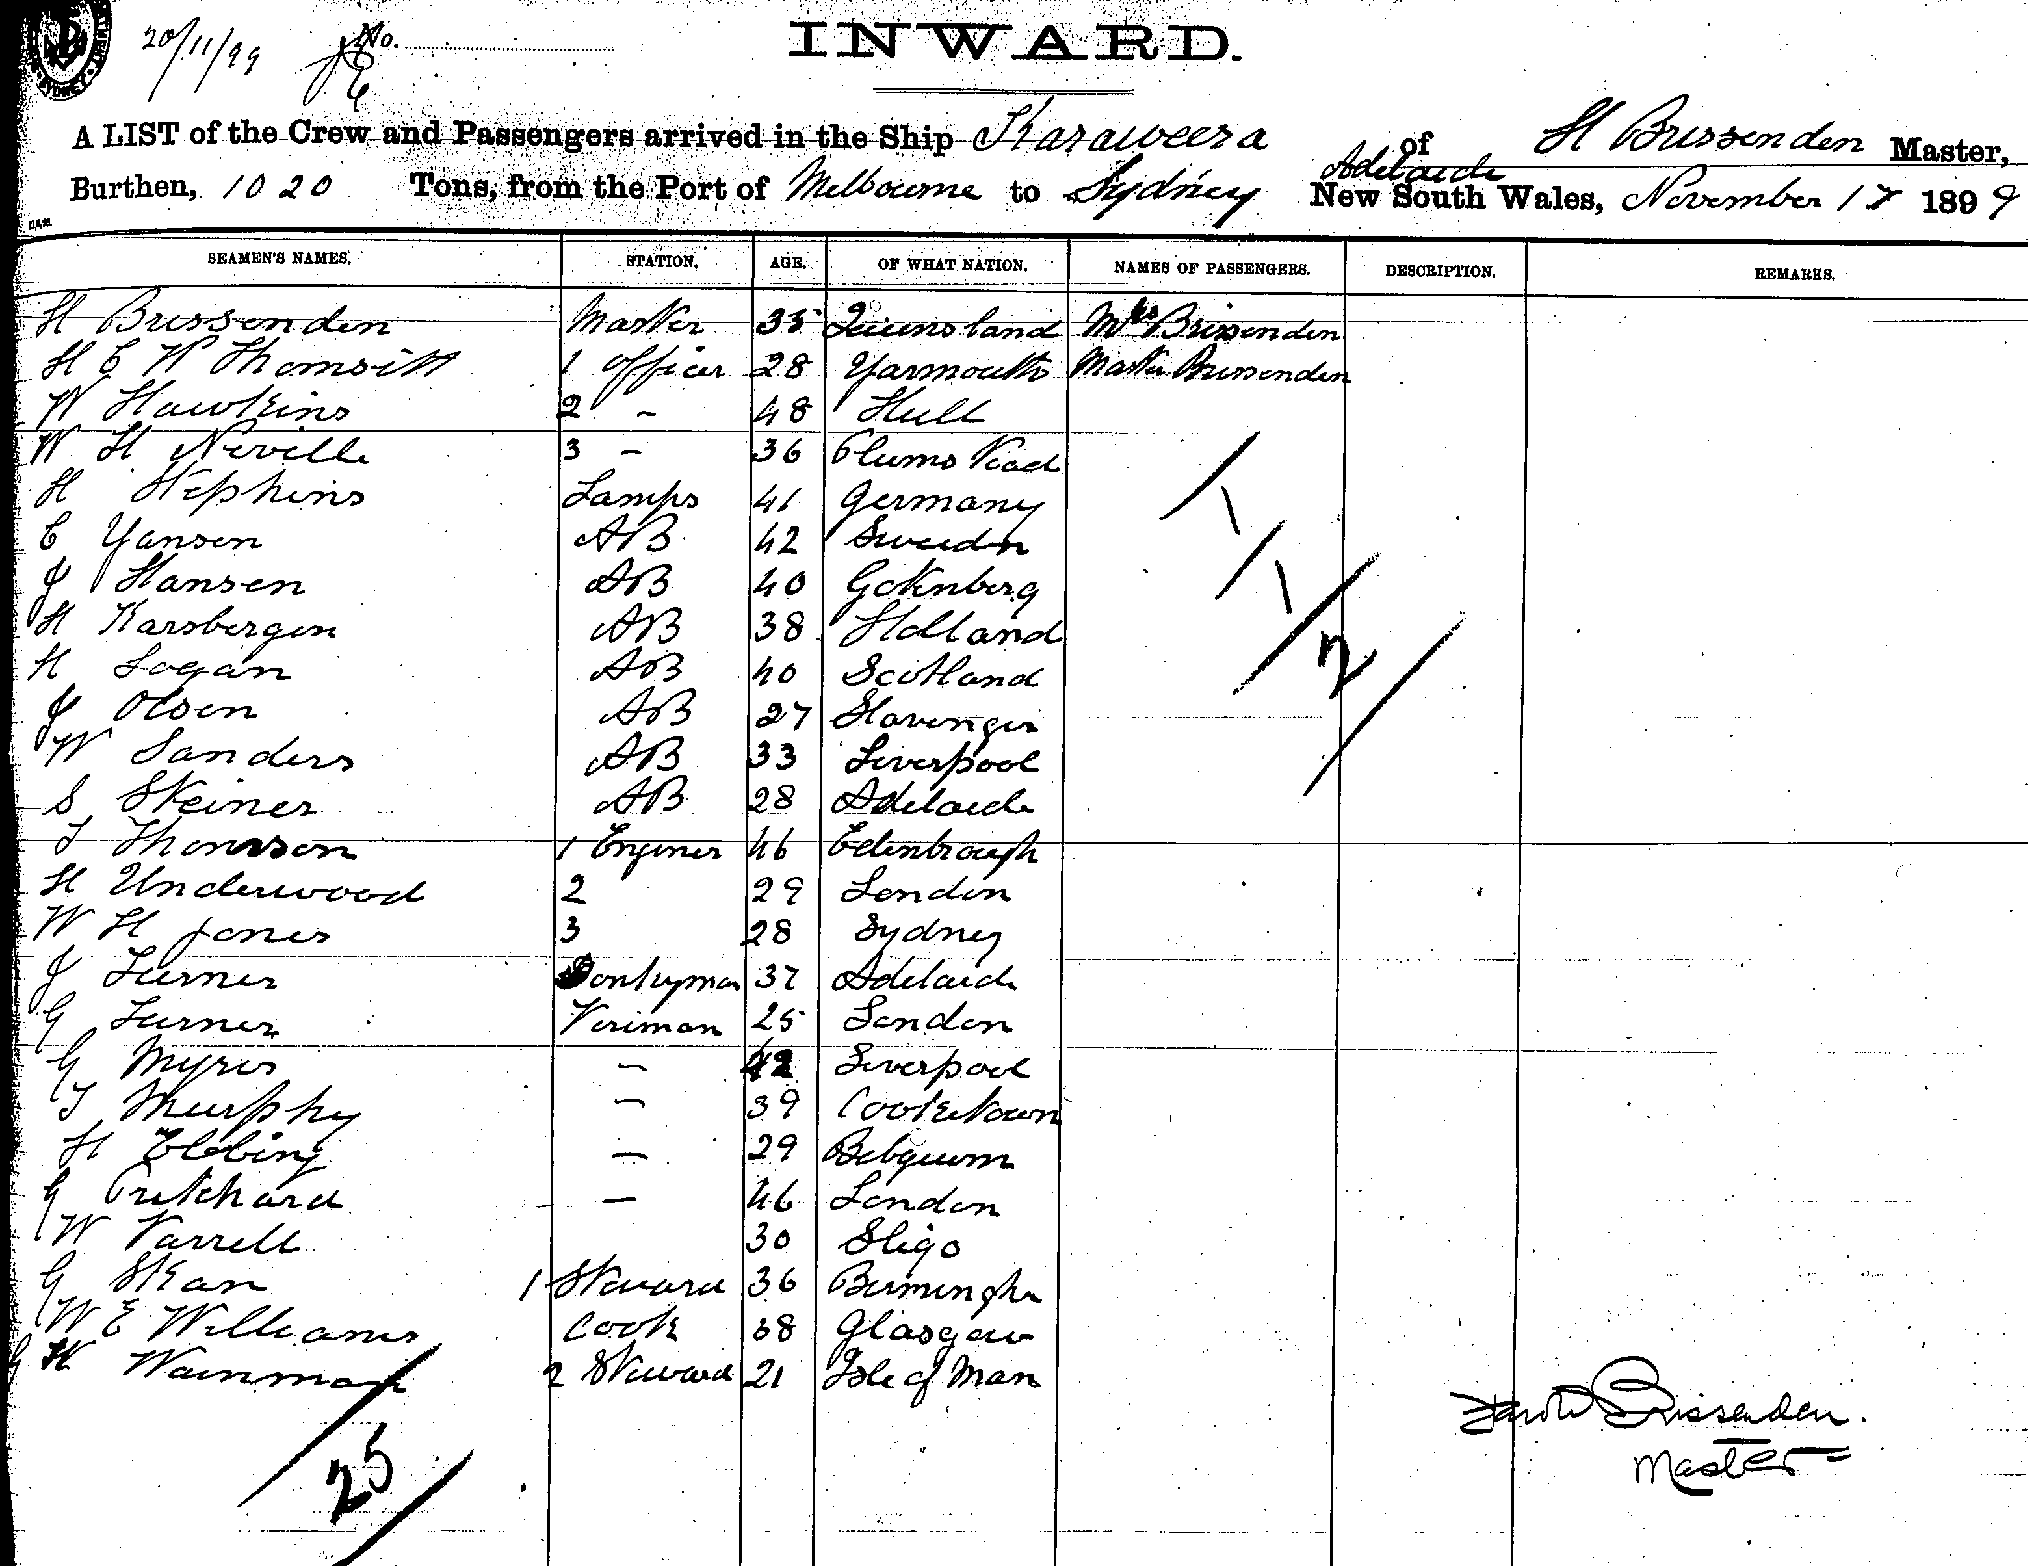 20/11/99 No.
INWARD.
A LIST of the Crew and Passengers arrived in the Ship Karaweera of Adelaide H Brissenden Master,
Burthen, 1020 Tons, from the Port of Melbourne to Sydney New South Wales, November 17 1899
SEAMEN'S NAMES. STATION. AGE. OF WHAT NATION. NAMES OF PASSENGERS. DESCRIPTION. REMARKS.
H Brissenden Master 35 Queensland Mrs Brissenden
H C W Thomsitt 1 Officer 28 Yarmouth Master Brissenden
W Hawkins 2 - 48 Hull
W H Neville 3 - 36 Plumstead
H Stephens Lamps 41 Germany
C Yansen AB 42 Sweeden
J Hansen AB 40 Gotenberg
H Karsbergen AB 38 Holland
H Logan AB 40 Scotland
J Olsen AB 27 Stavenger
W Sanders AB 33 Liverpool
S Steiner AB 28 Adelaide
T Thomson 1 Enginer 46 Edinbrough
H Underwood 2 29 London
W H Jones 3 28 Sydney
J Turner Donkyman 37 Adelaide
G Turner Firiman 25 London
G Myres - 42 Liverpool
T Murphy - 39 Cooketown
H Ebbing - 29 Belgeum
G Pritchard - 46 London
W Farrell 30 Sligo
G Stan 1 Steward 36 Birmingha
W E Williams Cook 38 Glasgow
G H Wainman 2 Steward 21 Isle of Man
2
25
Harold Brissenden.
Master